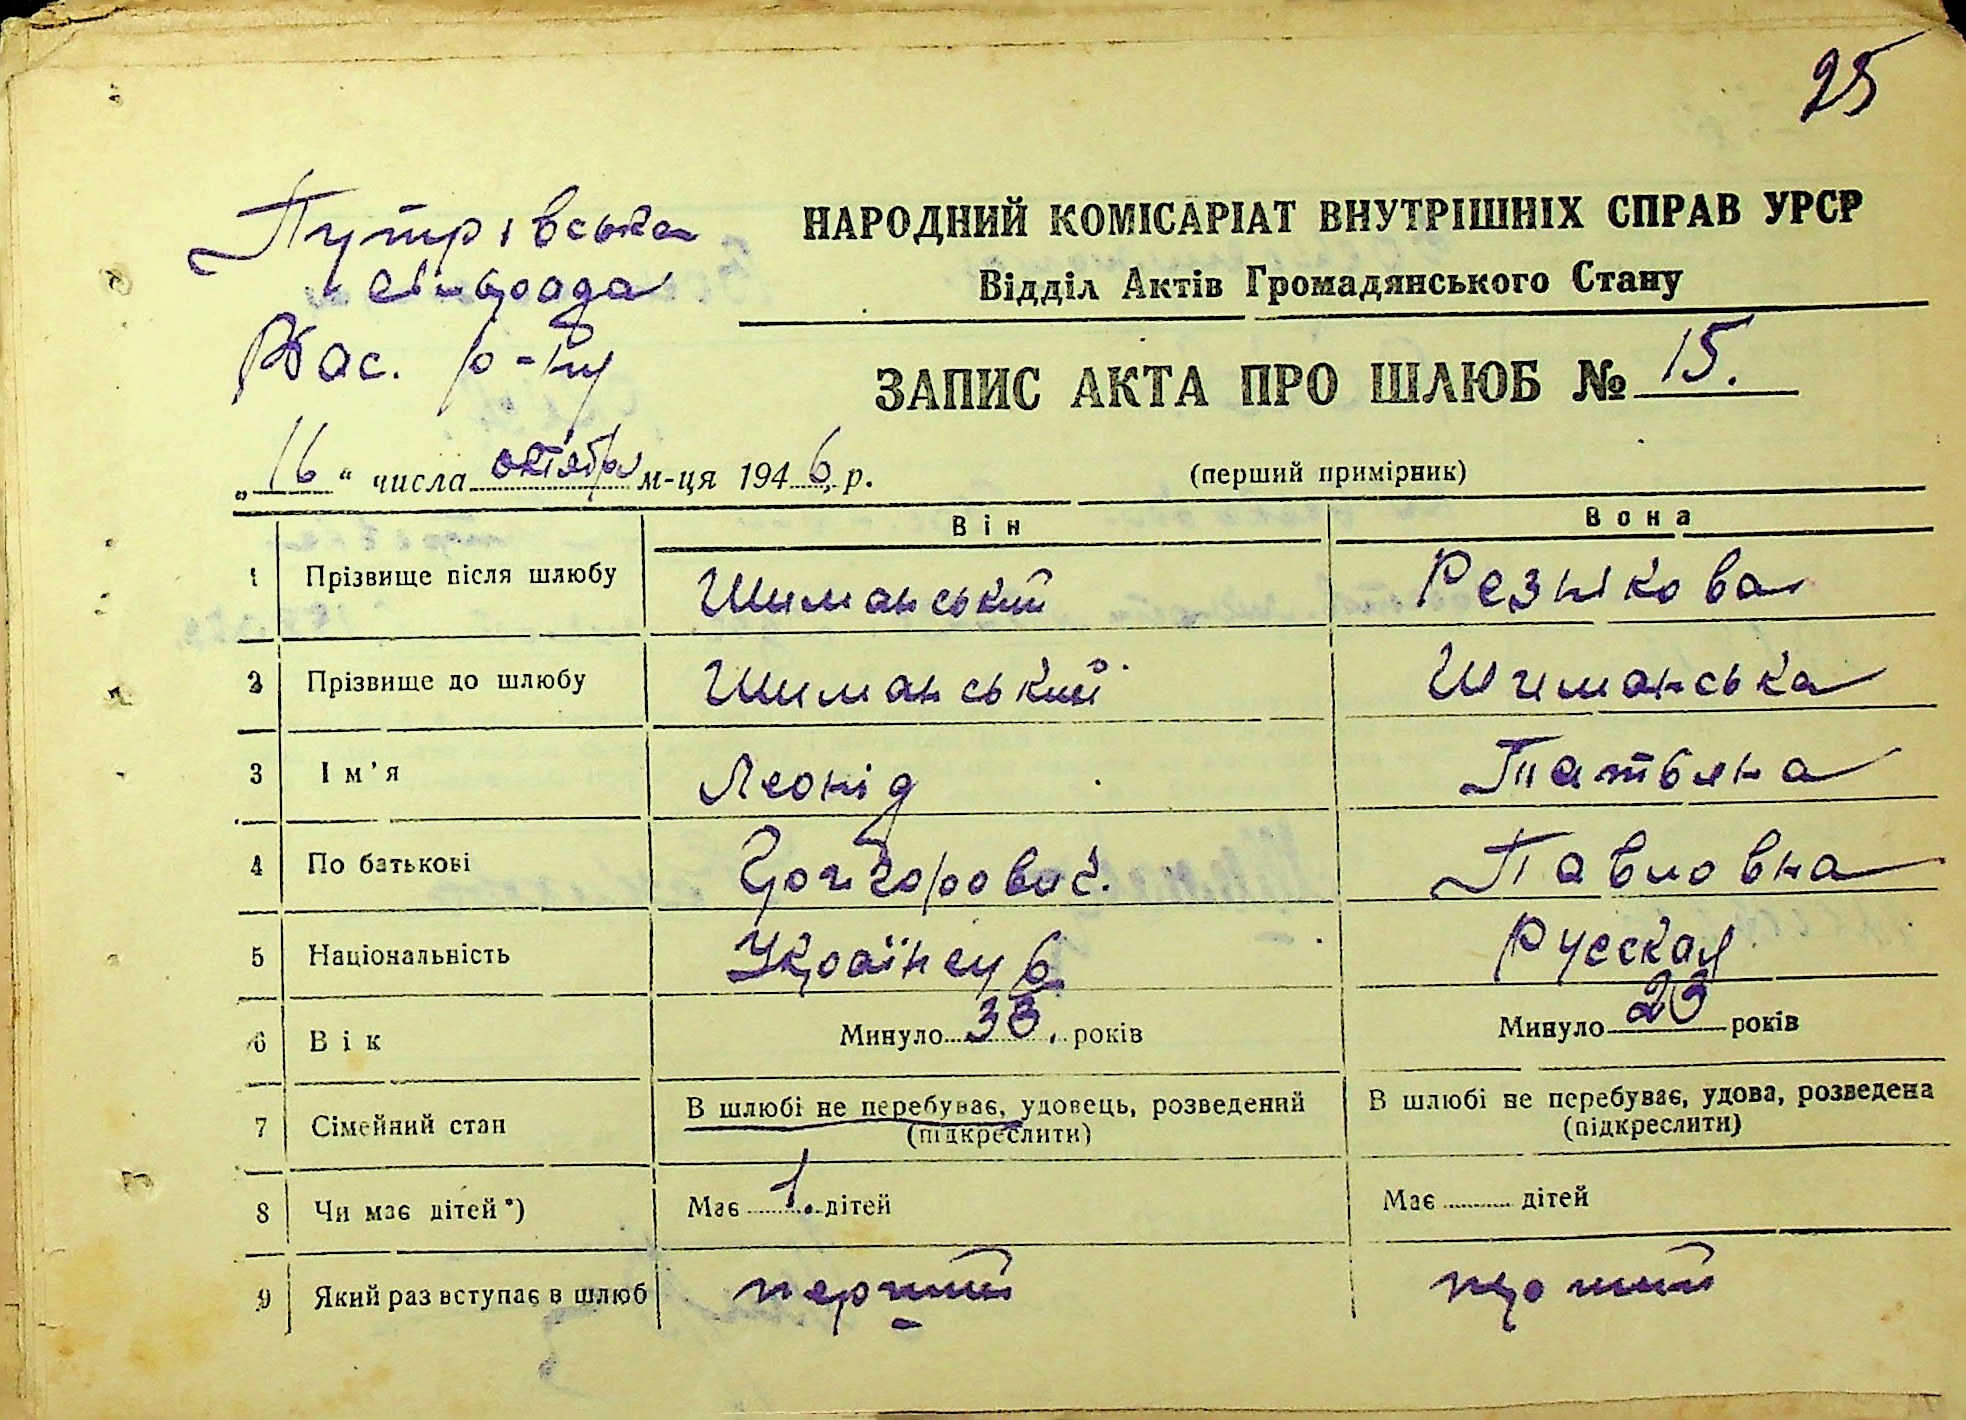 25
Путрівська
сільрада
Вас. р-ну
НАРОДНИЙ КОМІСАРІАТ ВНУТРІШНІХ СПРАВ УРСР
Відділ Актів Громадянського Стану
ЗАПИС АКТА ПРО ШЛЮБ № 15.
„16“ числа октября м-ця 1946 р.
(перший примірник)
Він Вона
1 Прізвище після шлюбу Шиманський Резнікова
2 Прізвище до шлюбу Шиманський Шиманська
3 Ім'я Леонід Татьяна
4 По батькові Григорович. Павловна
5 Національність Українець Русская
6 Вік Минуло 33. років Минуло 23 років
7 Сімейний стан В шлюбі не перебуває, удовець, розведений (підкреслити) В шлюбі не перебуває, удова, розведена (підкреслити)
8 Чи має дітей*) Має 1. дітей Має дітей
9 Який раз вступає в шлюб перший перший